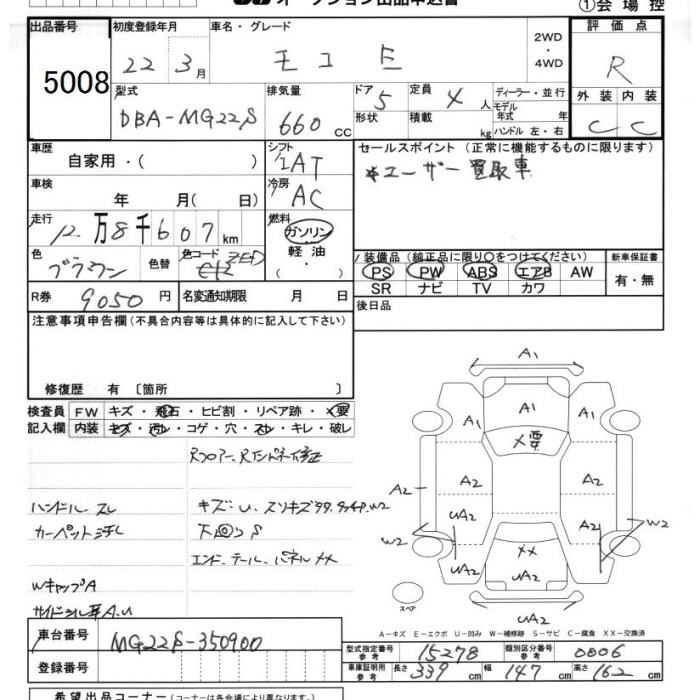 オークション出品申込書
①会場控
出品番号 5008
初度登録年月 22年 3月
車名・グレード モコ E
2WD・4WD
評価点 R
外装 C 内装 C
型式 DBA-MG22S
排気量 660 CC
ドア 5 形状
定員 4人 積載 kg
ディーラー・並行
モデル年式 年式
ハンドル 左・右
車歴 自家用・( )
シフト IAT
セールスポイント (正常に機能するものに限ります)
*ユーザー買取車
車検 年 月( 日)
冷房 AC
走行 12万8千607km
燃料 ガソリン・軽油・( )
色 ブラウン 色替
色コード ZED
装備品 (純正品に限り〇をつけてください)
PS PW ABS エアB AW
SR ナビ TV カワ
新車保証書 有・無
R券 9050円
名変通知期限 月 日
後日品
注意事項申告欄(不具合内容等は具体的に記入して下さい)
修復歴 有 〔箇所 〕
検査員記入欄
FW キズ・飛石・ヒビ割・リペア跡・X要
内装 キズ・汚れ・コゲ・穴・スレ・キレ・破レ
Rフロアー、Rエンドパネル修正
ハンドル スレ
キズ:U、スリキズ
W2
カーペット汚れ
下回りS
エンド、テール、パネルXX
WキャップA
サイドシル耳A.U
A1
A1
A1 X要 A1
A2 A2 A2
UA2 A2
W2 W2
XX
UA2 UA2 UA2
UA2
スペア
A-キズ E-エクボ U-凹み W-補修跡 S-サビ C-腐食 XX-交換済
車台番号 MG22S-350900
登録番号
型式指定番号 参考 15278
類別区分番号 参考 0006
車庫証明用 参考 長さ 339cm 幅 147cm 高さ 162cm
希望出品コーナー(コーナーは各会場により異なります)